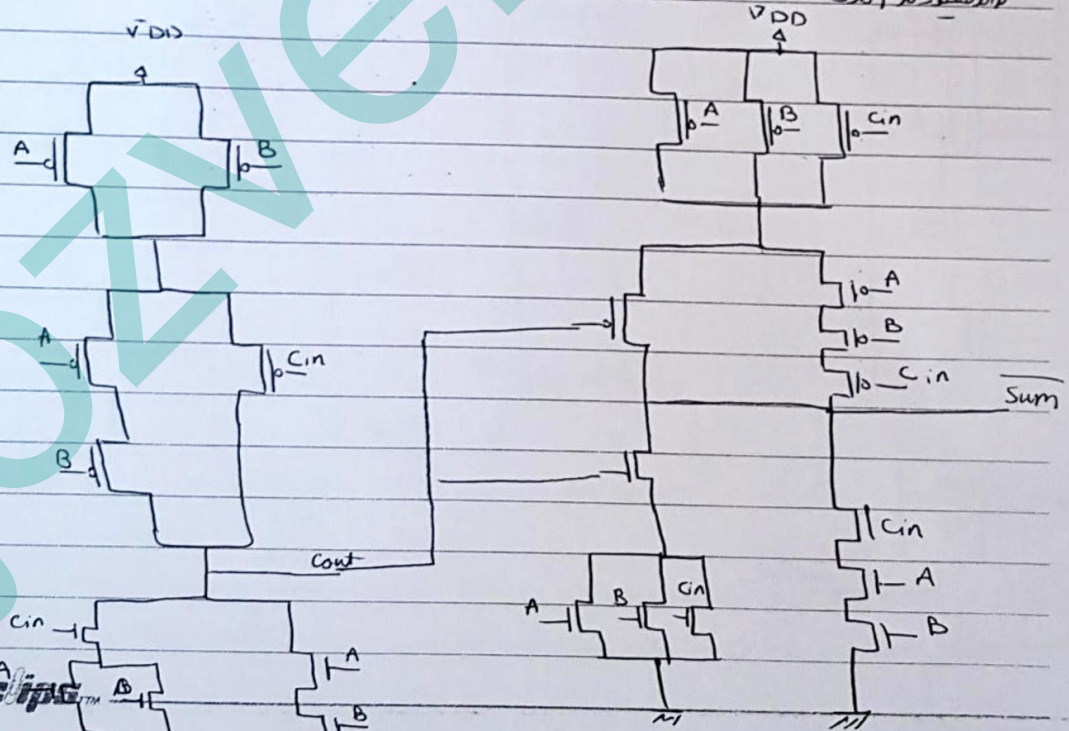 VDD
A
B
A
Cin
B
Cout
Cin
A
B
A
B
VDD
A
B
Cin
A
B
Cin
Sum
Cin
A
B
A
B
Cin